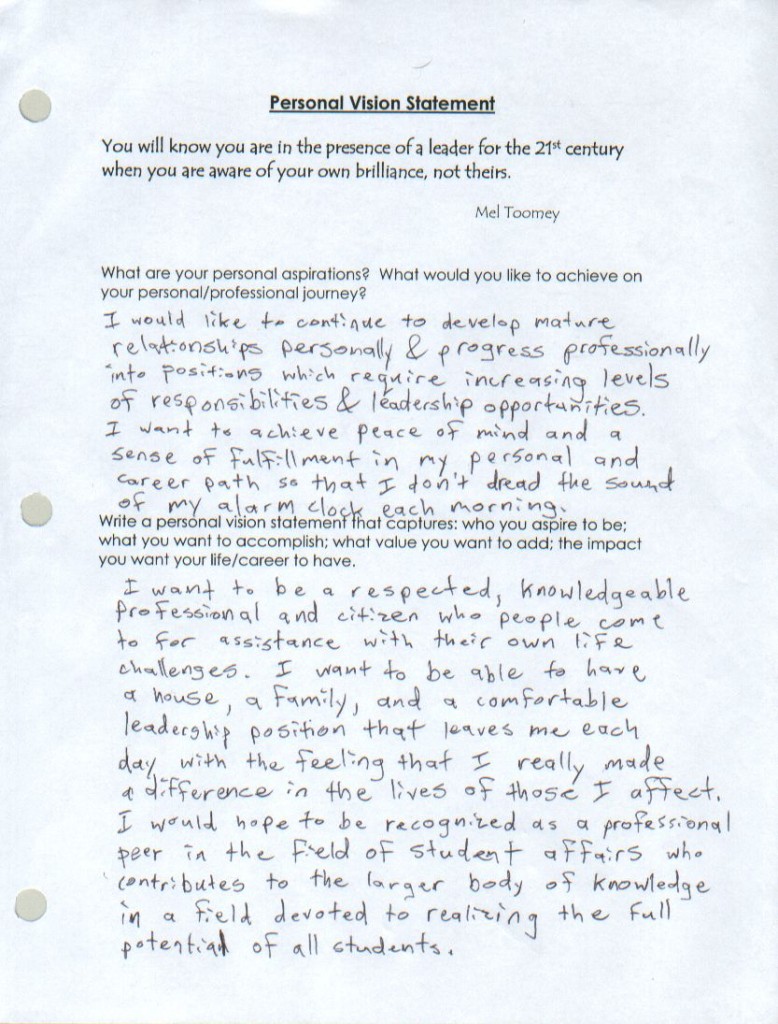 Personal Vision Statement
You will know you are in the presence of a leader for the 21st century
when you are aware of your own brilliance, not theirs.
Mel Toomey
What are your personal aspirations? What would you like to achieve on
your personal/professional journey?
I would like to continue to develop mature
relationships personally & progress professionally
into positions which require increasing levels
of responsibilities & leadership opportunities.
I want to achieve peace of mind and a
sense of fulfillment in my personal and
career path so that I don't dread the sound
of my alarm clock each morning.
Write a personal vision statement that captures: who you aspire to be;
what you want to accomplish; what value you want to add; the impact
you want your life/career to have.
I want to be a respected, knowledgeable
professional and citizen who people come
to for assistance with their own life
challenges. I want to be able to have
a house, a family, and a comfortable
leadership position that leaves me each
day with the feeling that I really made
a difference in the lives of those I affect.
I would hope to be recognized as a professional
peer in the field of student affairs who
contributes to the larger body of knowledge
in a field devoted to realizing the full
potential of all students.